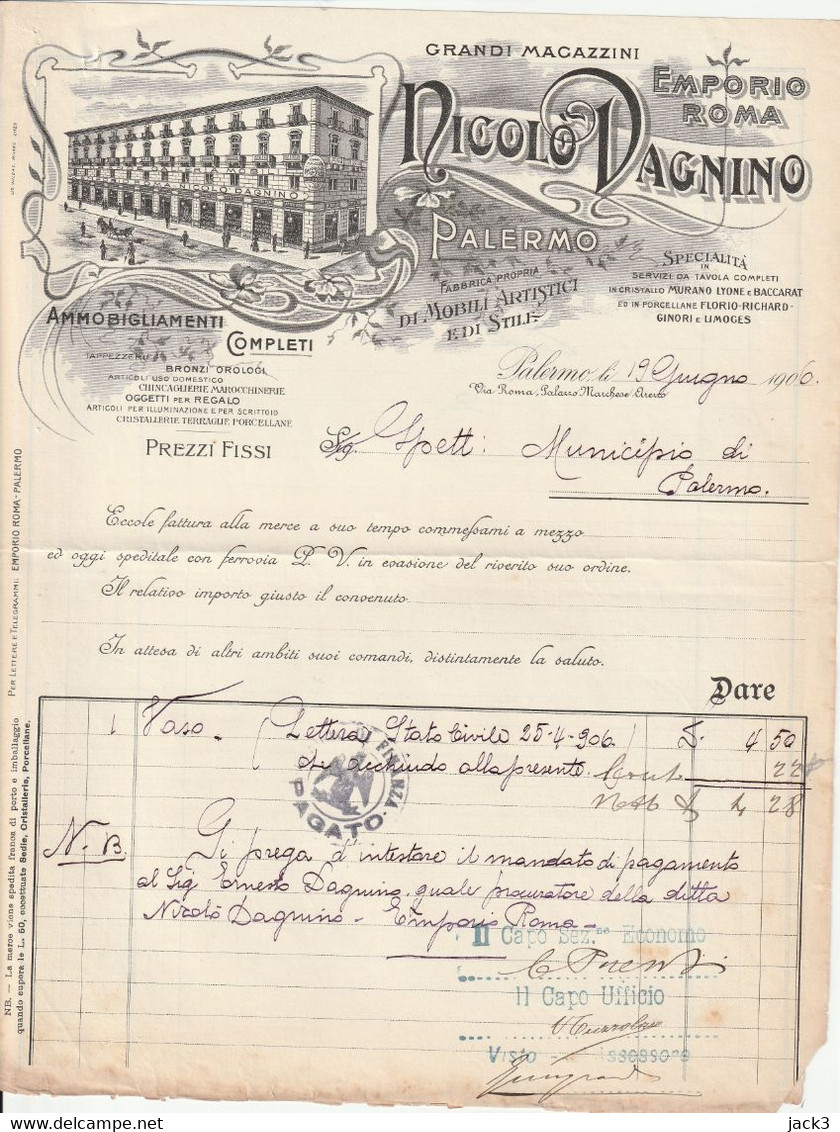 GRANDI MAGAZZINI
NICOLÒ DAGNINO
EMPORIO
ROMA
PALERMO
DITTA NICOLÒ DAGNINO
FABBRICA PROPRIA
DI MOBILI ARTISTICI
E DI STILE
SPECIALITÀ
IN
SERVIZI DA TAVOLA COMPLETI
IN CRISTALLO MURANO LYONE E BACCARAT
ED IN PORCELLANE FLORIO-RICHARD-
GINORI E LIMOGES
AMMOBIGLIAMENTI
COMPLETI
TAPPEZZERIE
BRONZI OROLOGI
ARTICOLI USO DOMESTICO
CHINCAGLIERIE MAROCCHINERIE
OGGETTI PER REGALO
ARTICOLI PER ILLUMINAZIONE E PER SCRITTOIO
CRISTALLERIE TERRAGLIE PORCELLANE
PREZZI FISSI
Palermo, li 19 Giugno 1906.
Via Roma, Palazzo Marchese Arezzo
Sig. Spett: Municipio di
Palermo.
Eccole fattura alla merce a suo tempo commessami a mezzo
ed oggi speditale con ferrovia P. V. in evasione del riverito suo ordine.
Il relativo importo giusto il convenuto
In attesa di altri ambiti suoi comandi, distintamente la saluto.
Dare
1 Vaso - (Lettera Stato Civile 25-4-906.) L. 4 50
che acchiudo alla presente. 22
Netto L 4 28
FINANZA
PAGATO
N.B. Si prega d'intestare il mandato di pagamento
al Sig Ernesto Dagnino, quale procuratore della ditta
Nicolò Dagnino - Emporio Roma -
Il Capo Sez.ne Economo
Il Capo Ufficio
Visto - Assessore
PER LETTERE E TELEGRAMMI: EMPORIO ROMA-PALERMO
NB. — La merce viene spedita franca di porto e imballaggio
quando supera le L. 50, eccettuate Sedie, Cristallerie, Porcellane.
jack3